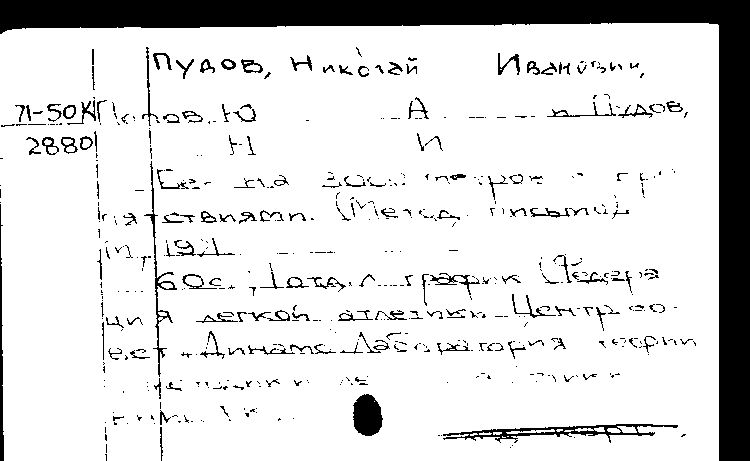 Пудов, Николай Иванович,
71-50К Попов Ю А и Пудов,
2880 Н И
Бег на 3000 метров с пре
пятствиями. (Метод. письмо)
М, 1971
60с.; 1 отд. л график (Федера
ция легкой атлетики Центр со
вет "Динамо" Лаборатория теории